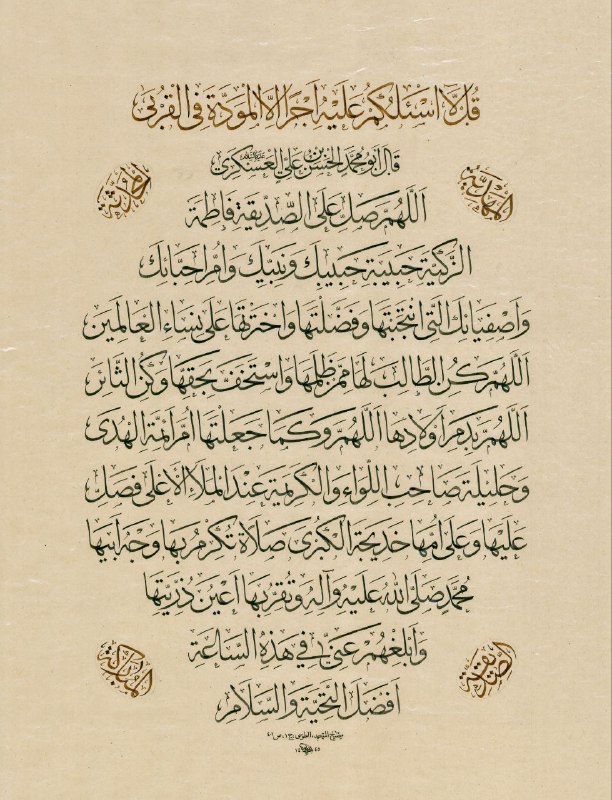 قُل لَّا أَسْئَلُكُمْ عَلَيْهِ أَجْرًا إِلَّا الْمَوَدَّةَ فِي الْقُرْبَى
قَالَ أَبُو مُحَمَّدٍ الْحَسَنُ بْنُ عَلِيٍّ الْعَسْكَرِيُّ
المهديّة
اللَّهُمَّ صَلِّ عَلَى الصِّدِّيقَةِ فَاطِمَةَ
الزَّكِيَّةِ حَبِيبَةِ حَبِيبِكَ وَنَبِيِّكَ وَأُمِّ أَحِبَّائِكَ
وَأَصْفِيَائِكَ الَّتِي انْتَجَبْتَهَا وَفَضَّلْتَهَا وَاخْتَرْتَهَا عَلَى نِسَاءِ الْعَالَمِينَ
اللَّهُمَّ كُنِ الطَّالِبَ لَهَا مِمَّنْ ظَلَمَهَا وَاسْتَخَفَّ بِحَقِّهَا وَكُنِ الثَّائِرَ
اللَّهُمَّ بِدَمِ أَوْلَادِهَا اللَّهُمَّ وَكَمَا جَعَلْتَهَا أُمَّ أَئِمَّةِ الْهُدَى
وَحَلِيلَةَ صَاحِبِ اللِّوَاءِ وَالْكَرِيمَةَ عِنْدَ الْمَلَإِ الْأَعْلَى فَصَلِّ
عَلَيْهَا وَعَلَى أُمِّهَا خَدِيجَةَ الْكُبْرَى صَلَاةً تُكْرِمُ بِهَا وَجْهَ أَبِيهَا
مُحَمَّدٍ صَلَّى اللَّهُ عَلَيْهِ وَآلِهِ وَتُقِرُّ بِهَا أَعْيُنَ ذُرِّيَّتِهَا
وَأَبْلِغْهُمْ عَنِّي فِي هَذِهِ السَّاعَةِ
أَفْضَلَ التَّحِيَّةِ وَالسَّلَامِ
المباركة